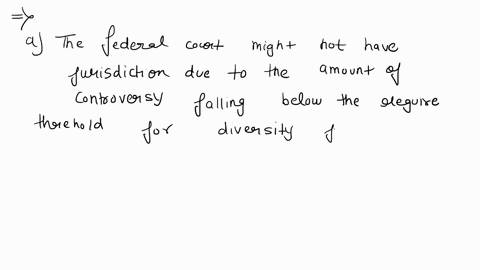 =>
a) The federal court might not have
jurisdiction due to the amount of
controversy falling below the require
threhold for diversity f